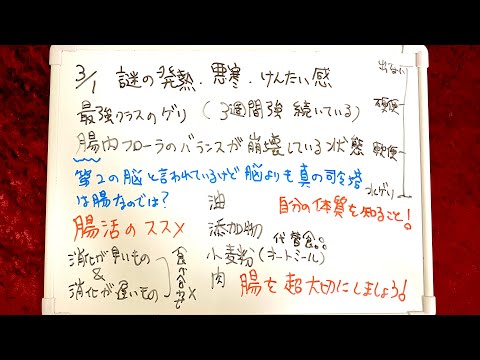 3/1 謎の発熱．悪寒．けんたい感
最強クラスのゲリ（3週間強 続いている）
腸内フローラのバランスが崩壊している状態
第2の脳と言われているけど脳よりも真の司令塔
は腸なのでは？
腸活のススメ
消化が早いもの
&
消化が遅いもの
食べ合わせ×
油
添加物
小麦粉（オートミール）
代替食。
肉
出ない
硬便
軟便
水ゲリ
自分の体質を知ること！
腸を超大切にしましょう！